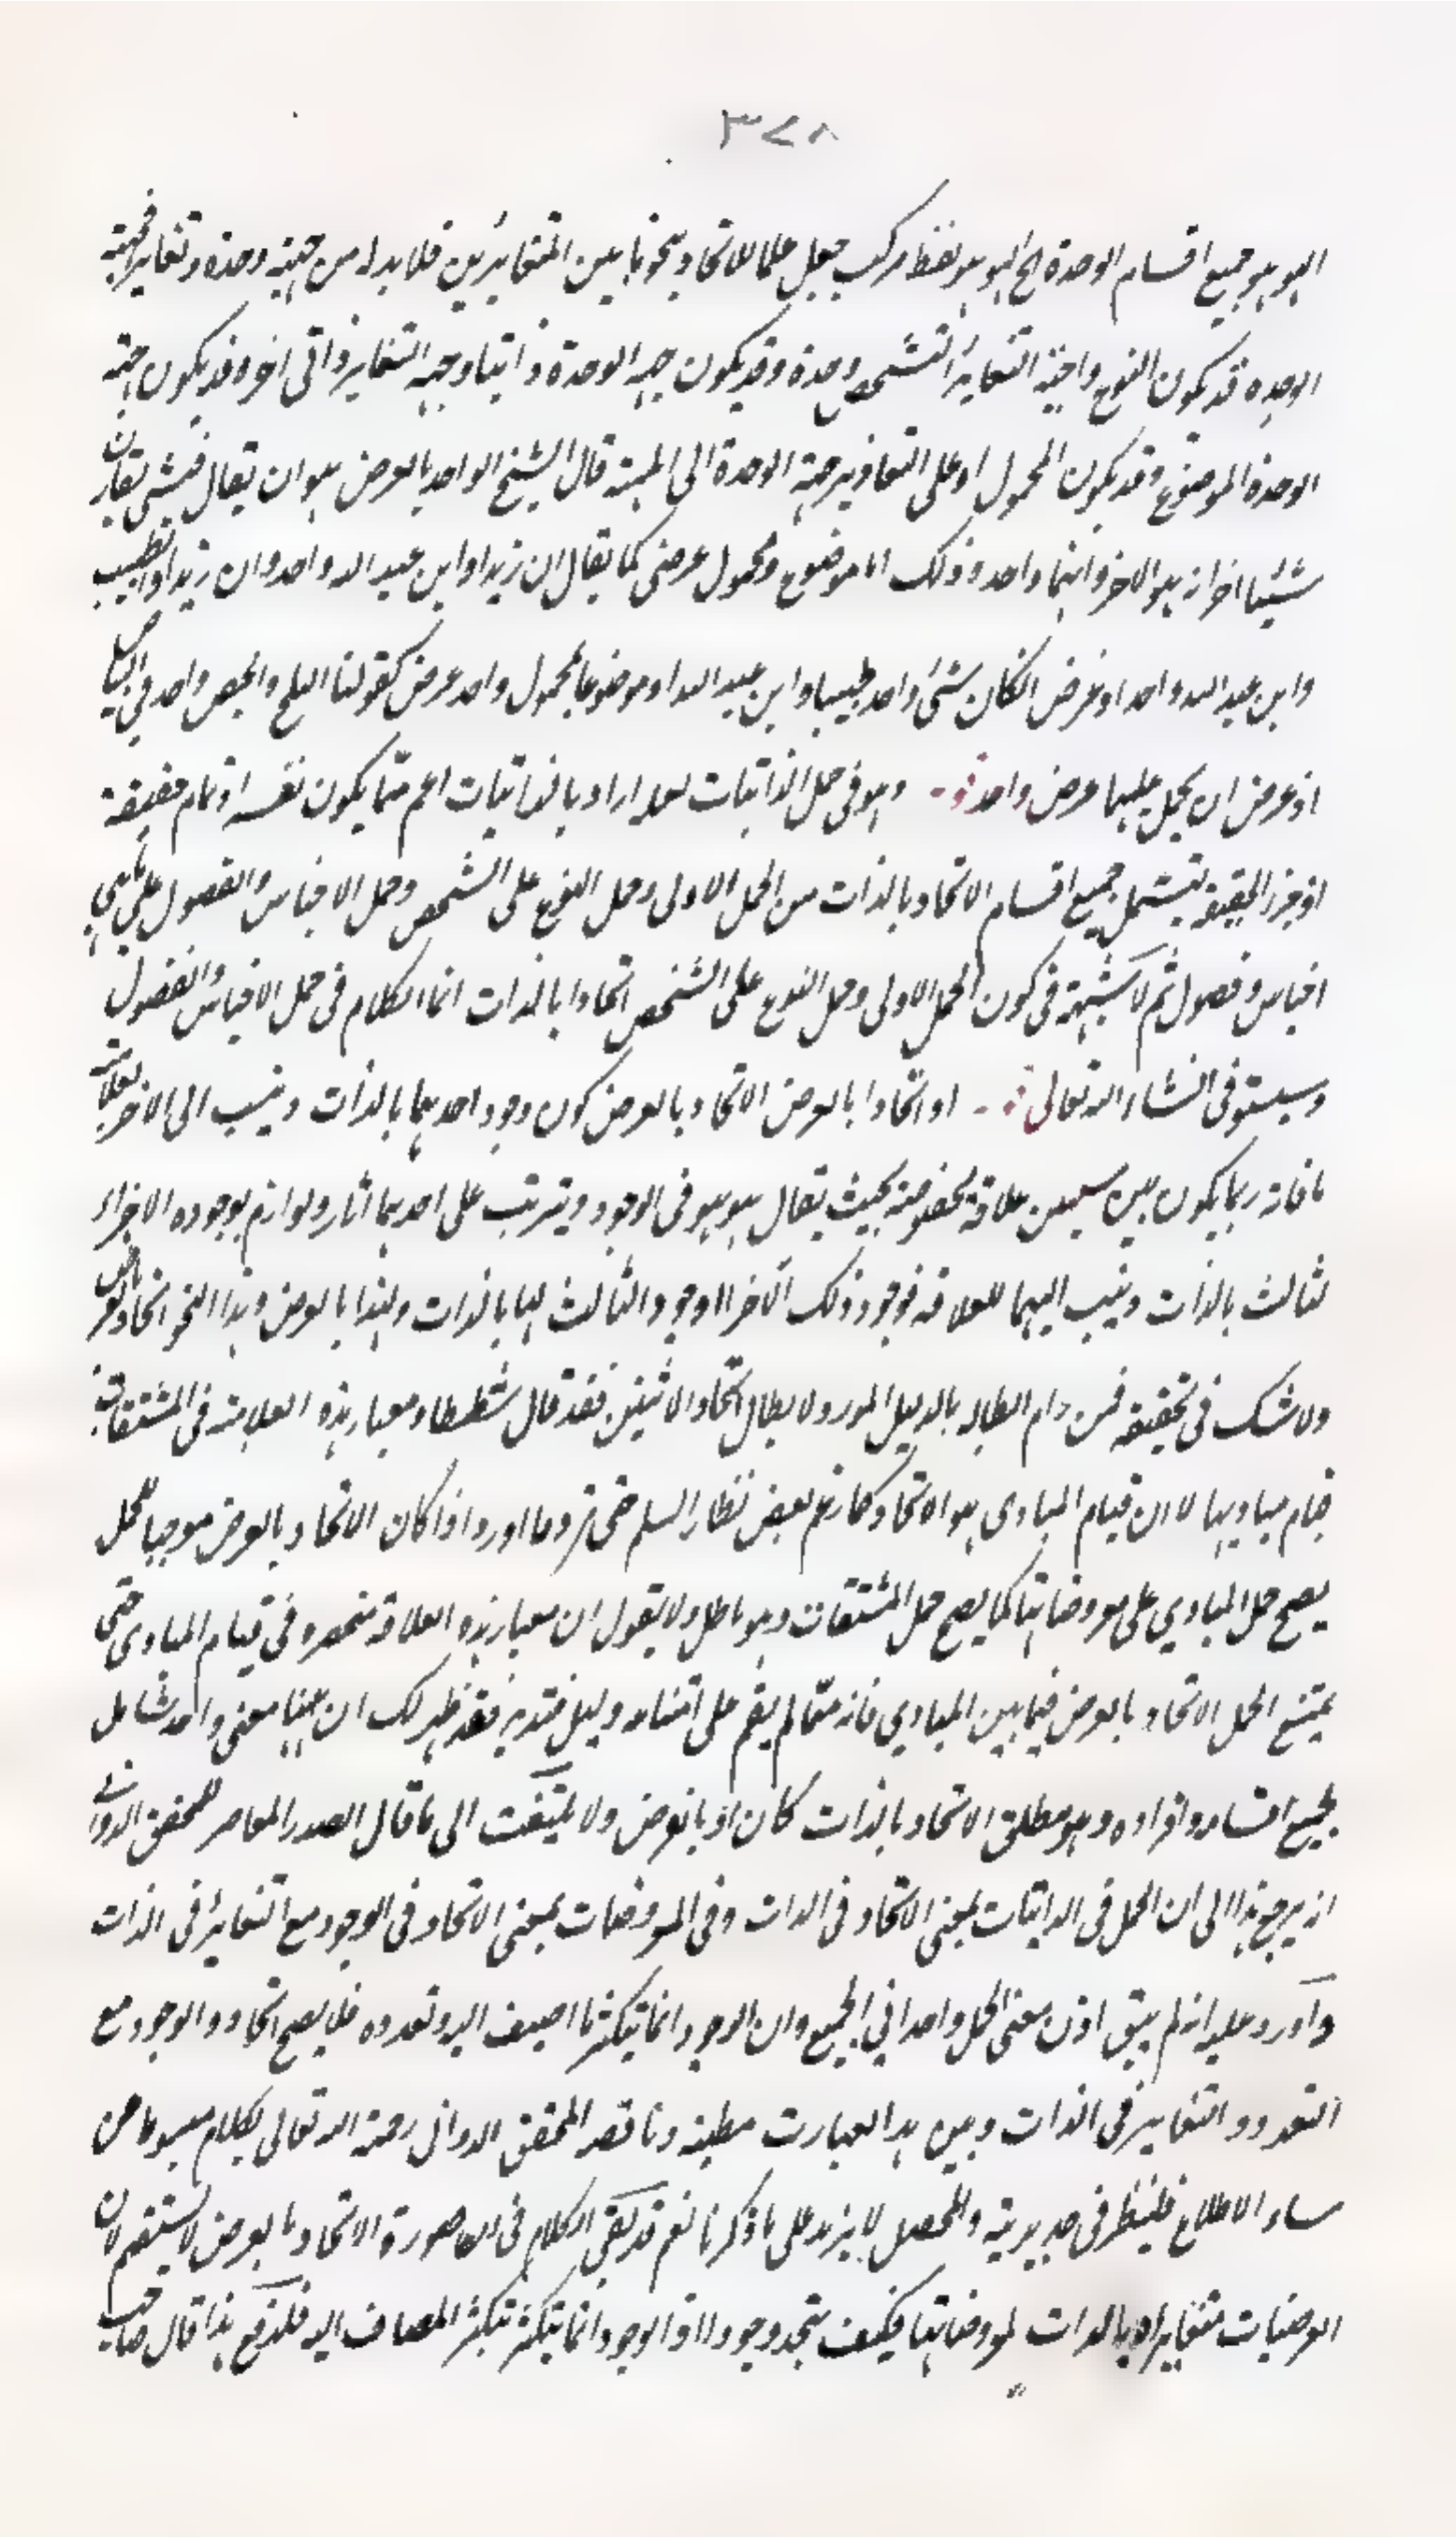 ٣٧٨
الهو هو جميع اقسام الوحدة الخ الهو هو لفظ مركب جعل علما للاتحاد بنحو ما بين المتغايرين فلا بد له من جهة وحدة وتغاير فجهة
الوحدة قد يكون النوع واجهة التغاير التشخص وحدة وقد يكون جهة الوحدة ذاتيا وجهة التغاير ذاتى اخر وقد يكون جهة
الوحدة الموضوع وقد يكون المحمول او على التغاوير جهة الوحدة الى الهيئة قال الشيخ الواحد بالعرض هو ان يقال فى شى يقارن
شيئا اخر انه هو الاخر وانهما واحد وذلك اما موضوع ومحمول عرضى كما يقال ان زيدا وابن عبد الله واحد وان زيدا والطبيب
وابن عبد الله واحد او عرض لكان شئ واحد طبيبا وابن عبد الله او موضوعا لمحمول واحد عرض كقولنا الثلج والجص واحد فى البياض
اذ عرض ان يحمل عليهما عرض واحد وهو فى حمل الذاتيات لعله اراد بالذاتيات اعم مما يكون نفسه او تمام حقيقة
او جزء الحقيقة ليشمل جميع اقسام الاتحاد بالذات من الحمل الاولى وحمل النوع على الشخص وحمل الاجناس والفصول على ما هى
اجناس وفصول ثم لا شبهة فى كون الحمل الاولى وحمل النوع على الشخص اتحادا بالذات انما الكلام فى حمل الاجناس والفصول
وسيستوفى انشاء الله تعالى او اتحادا بالعرض الاتحاد بالعرض كون وجود احدهما بالذات وينسب الى الاخر لعلاقة
ما فانه ربما يكون بين علاقة مخصوصة بحيث يقال هو هو فى الوجود ويترتب على احدهما اثار ولوازم بوجوده الاجزاء
ثالث بالذات وينسب اليهما للعلاقة فوجود ذلك الآخر او وجود الثالث لها بالذات ولهذا بالعرض وهذا النحو اتحاد بالعرض
ولا شك فى تحقيقه فمن رام ابطاله بالدليل المورد لابطال اتحاد الاثنين فقد قال شططا ومعيار هذه العلاقة فى المشتقات
قيام مباديها لا ان قيام المبادى هو الاتحاد كما زعم بعض نظار السلم حتى يرد ما اورد اذا كان الاتحاد بالعرض موجبا للحمل
يصح حمل المبادي على معروضاتها كما يصح حمل المشتقات وهو باطل ولا يقول ان معيار هذه العلاقة منحصرة فى قيام المبادى حتى
يمتنع الحمل الاتحاد بالعرض فيما بين المبادي فانه مما لم يقم على امتناعه دليل فتدبر فقد ظهر لك ان ههنا معنى واحد شامل
لجميع اقسامه وافراده وهو مطلق الاتحاد بالذات كان او بالعرض ولا يلتفت الى ما قال الصدر المعاصر للمحقق الدوانے
انه يرجع هذا الى ان الحمل فى الذاتيات بمعنى الاتحاد فى الذات وفى المعروضات بمعنى الاتحاد فى الوجود مع التغاير فى الذات
وآورد عليه انه لم يبق اذن معنى الحمل واحدا فى الجميع وان الوجود انما يتكثر بما اضيف اليه وتعدده فلا يصح اتحاد و الوجود مع
التعدد و التغاير فى الذات وبين هذا العبارت مطنبة وناقضه المحقق الدوانى رحمة الله تعالى بكلام مبسوط من
ساء الاطلاع فلينظر فى جديديته والمحصل لا يزيد على ما ذكرنا نعم قد بقى الكلام فى ان صورة الاتحاد بالعرض لا يستقيم لان
العرضيات متغايرة بالذات لمعروضاتها فكيف يتحد وجودا او الوجود انما يتكثر بتكثر المضاف اليه فليدفع هذا قال صاحب